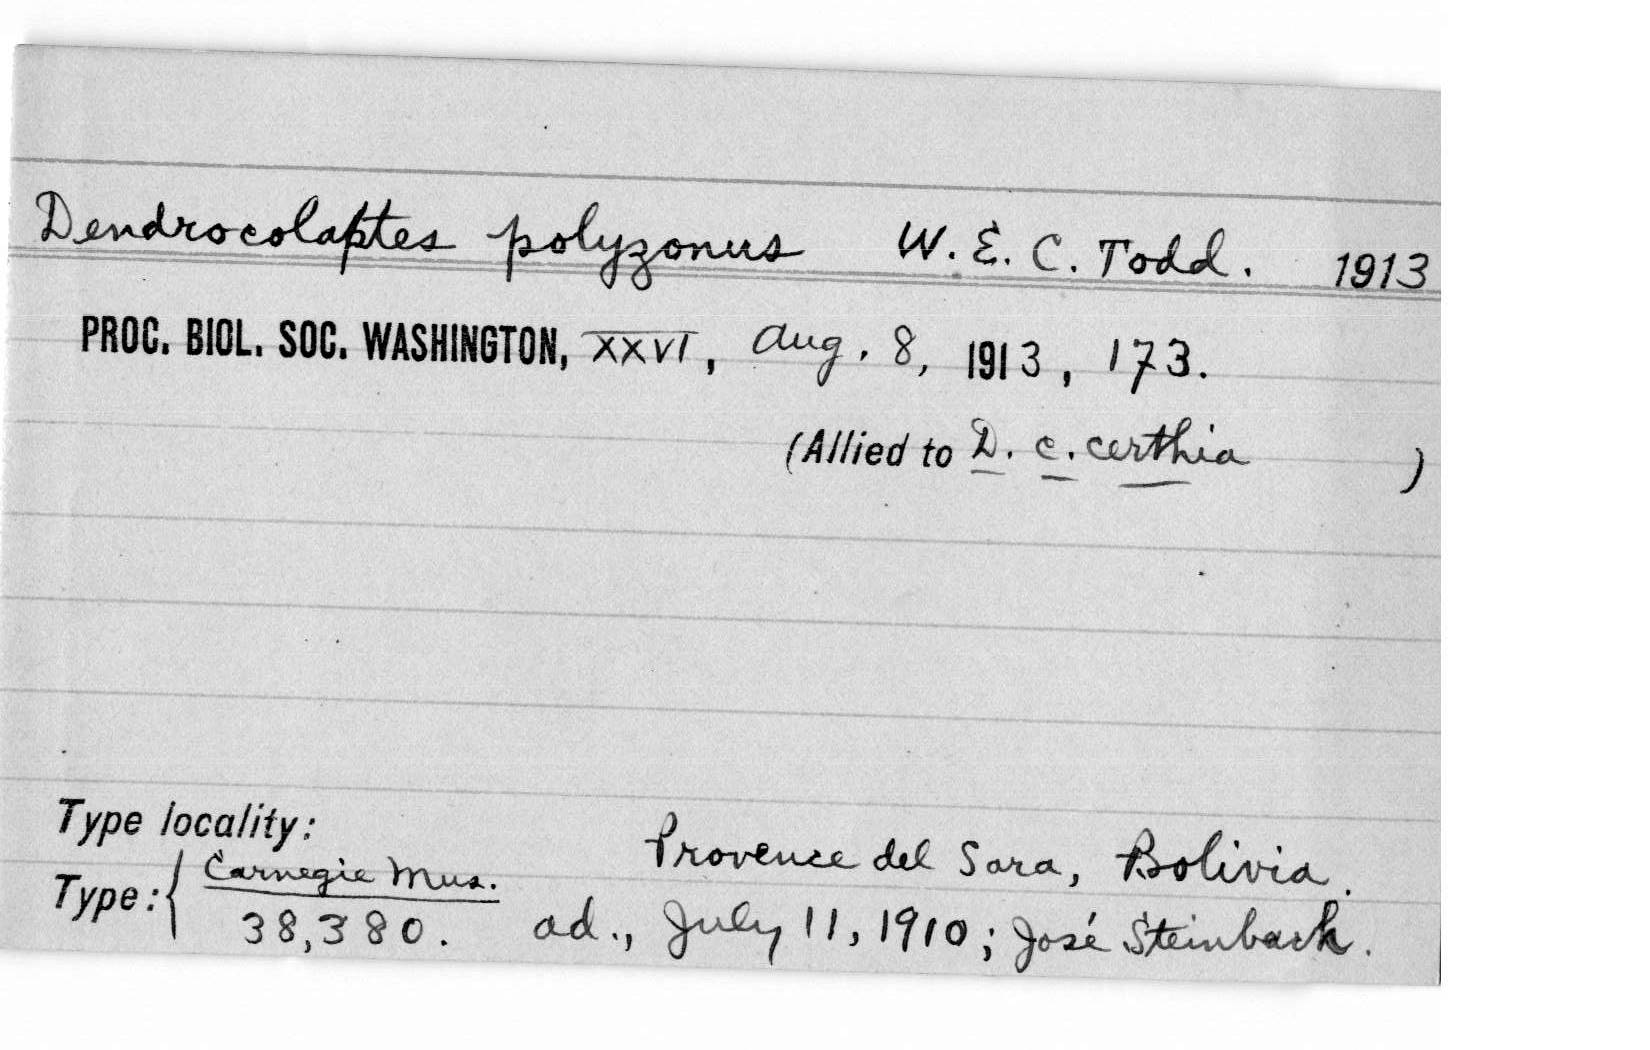 Dendrocolaptes polyzonus W. E. C. Todd. 1913
PROC. BIOL. SOC. WASHINGTON, XXVI, Aug. 8, 1913, 173.
(Allied to D. c. certhia )
Type locality: Provence del Sara, Bolivia.
Type: { Carnegie Mus.
38,380. ad., July 11, 1910; José Steinbach.